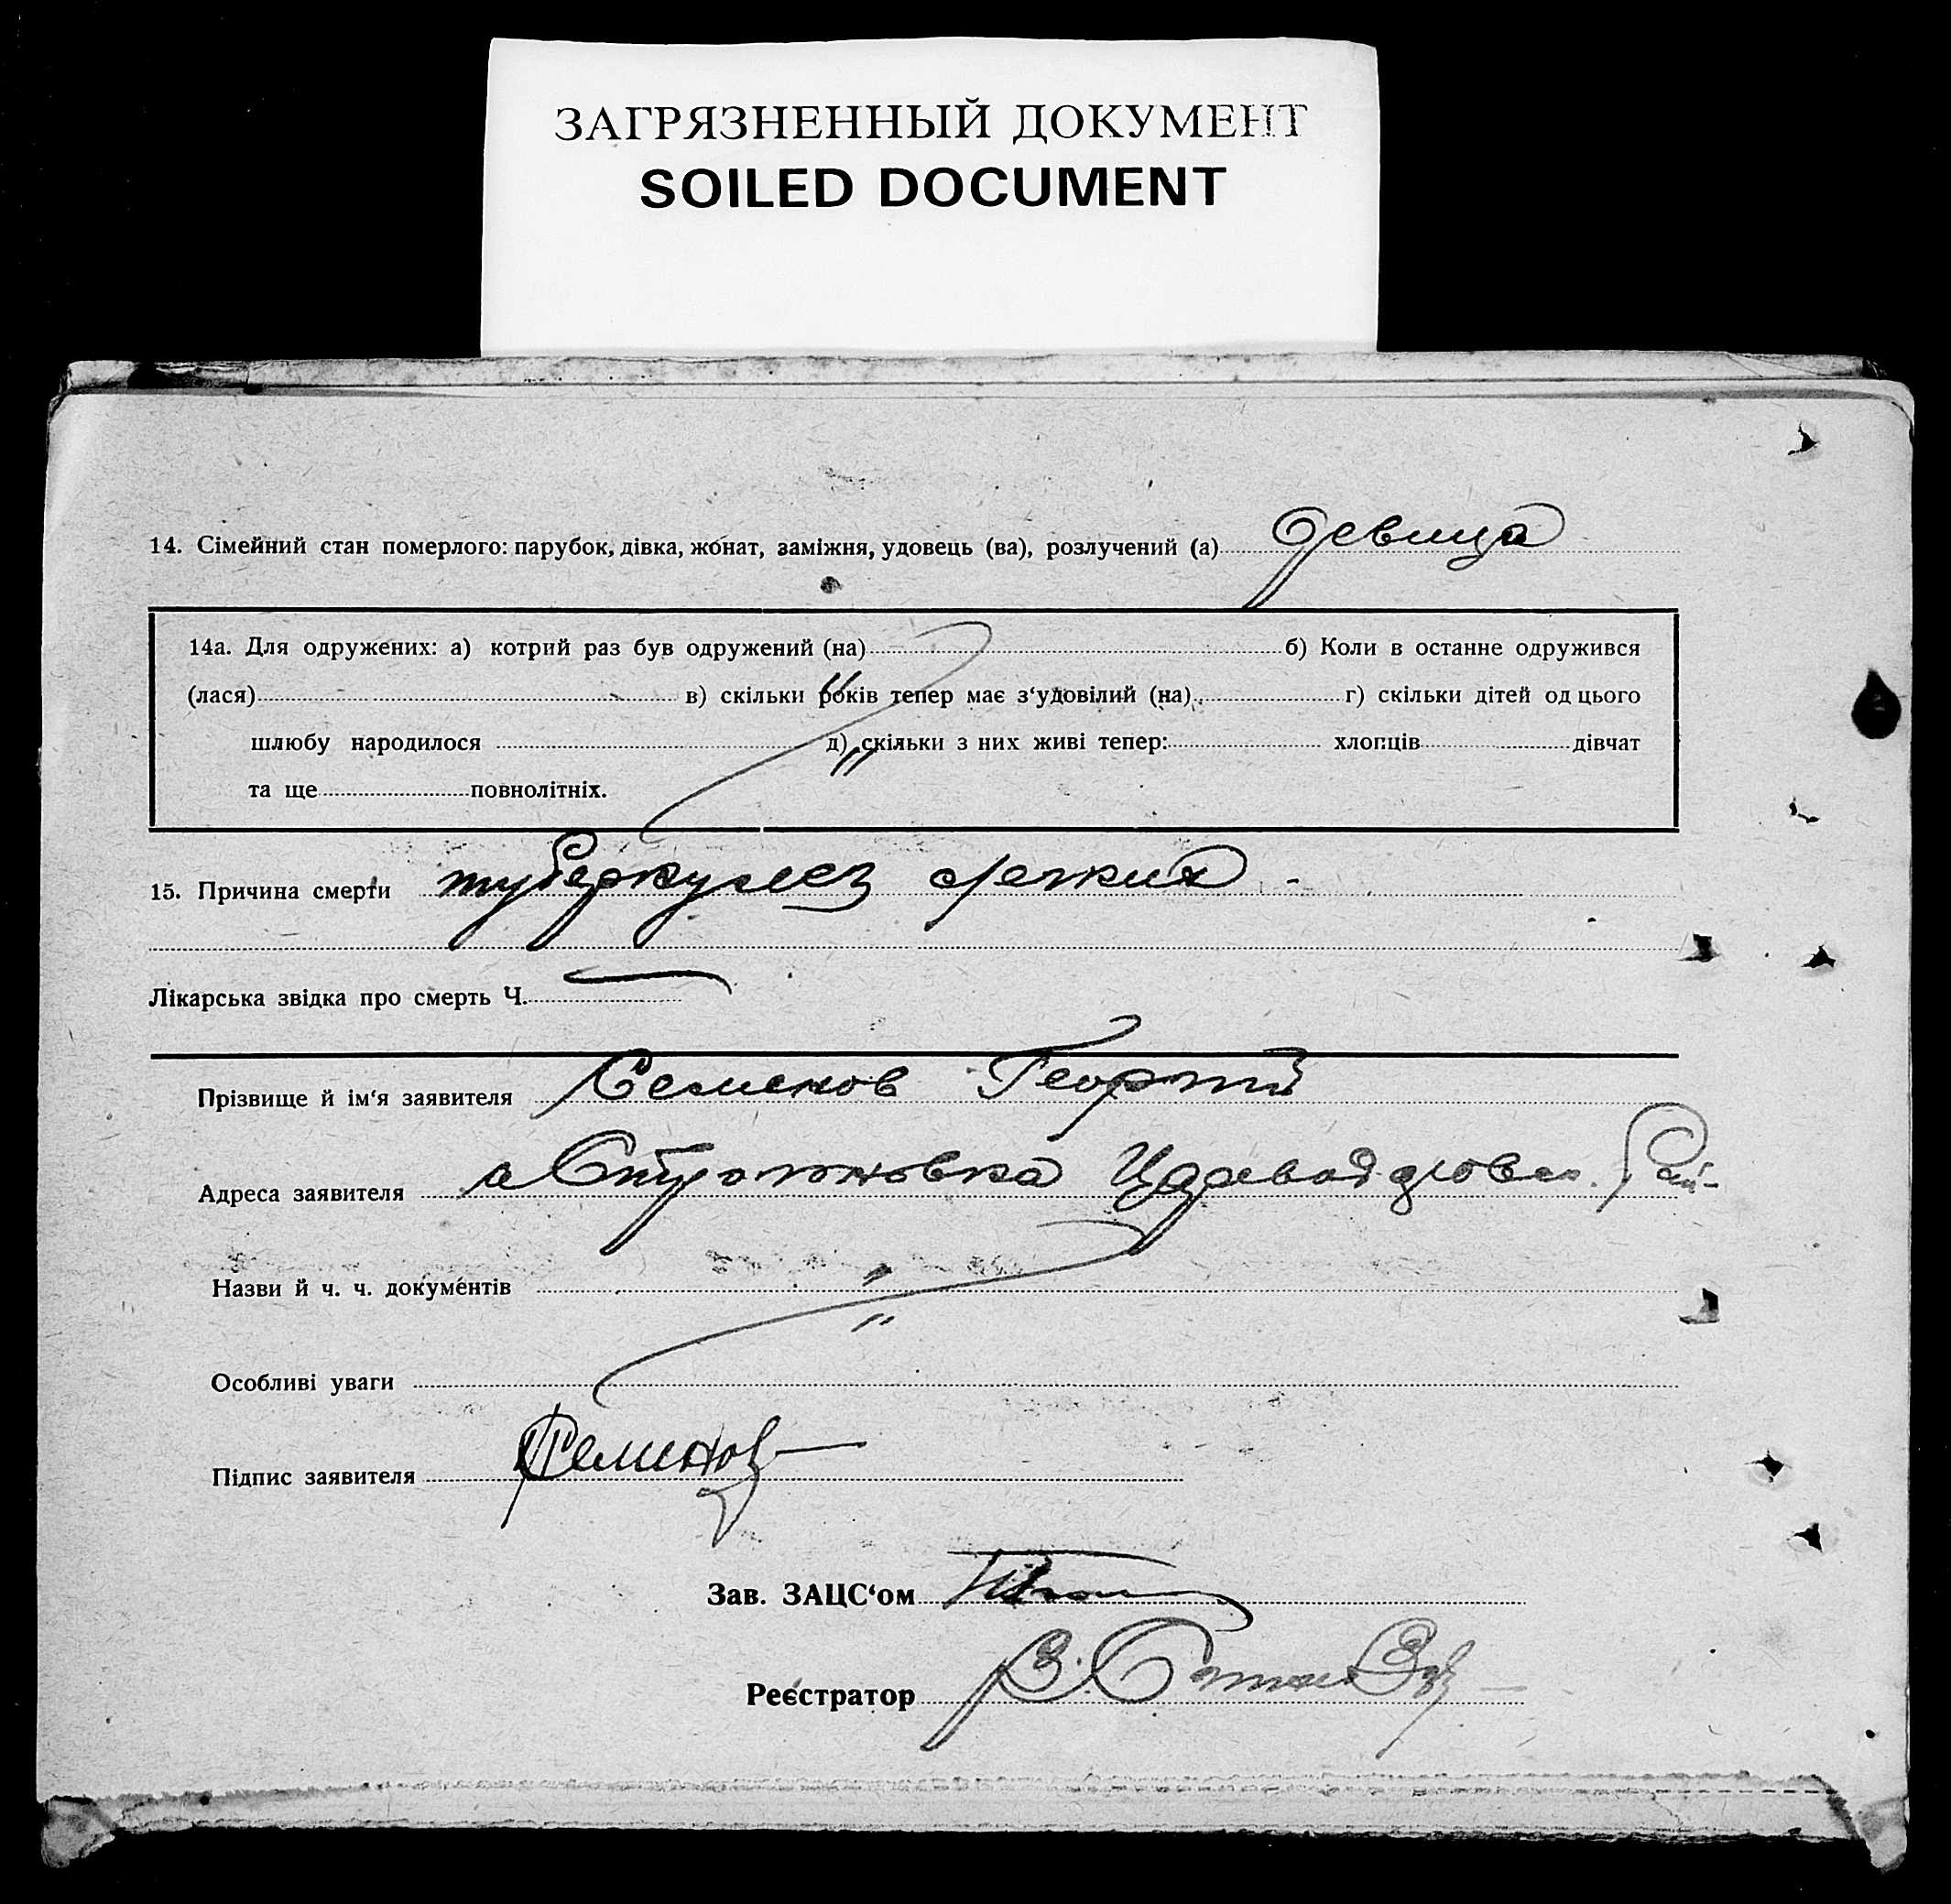 ЗАГРЯЗНЕННЫЙ ДОКУМЕНТ
SOILED DOCUMENT
14. Сімейний стан померлого: парубок, дівка, жонат, заміжня, удовець (ва), розлучений (а) девица
14а. Для одружених: а) котрий раз був одружений (на) б) Коли в останне одружився
(лася) в) скільки років тепер має з‘удовілий (на) г) скільки дітей од цього
шлюбу народилося д) скільки з них живі тепер: хлопців дівчат
та ще повнолітніх.
15. Причина смерти туберкулез легких -
Лікарська звідка про смерть Ч. —
Прізвище й ім‘я заявителя Семенов Георгий
Адреса заявителя Рай-
Назви й ч. ч. документів
Особливі уваги
Підпис заявителя Семенов
Зав. ЗАЦС‘ом
Реєстратор В.